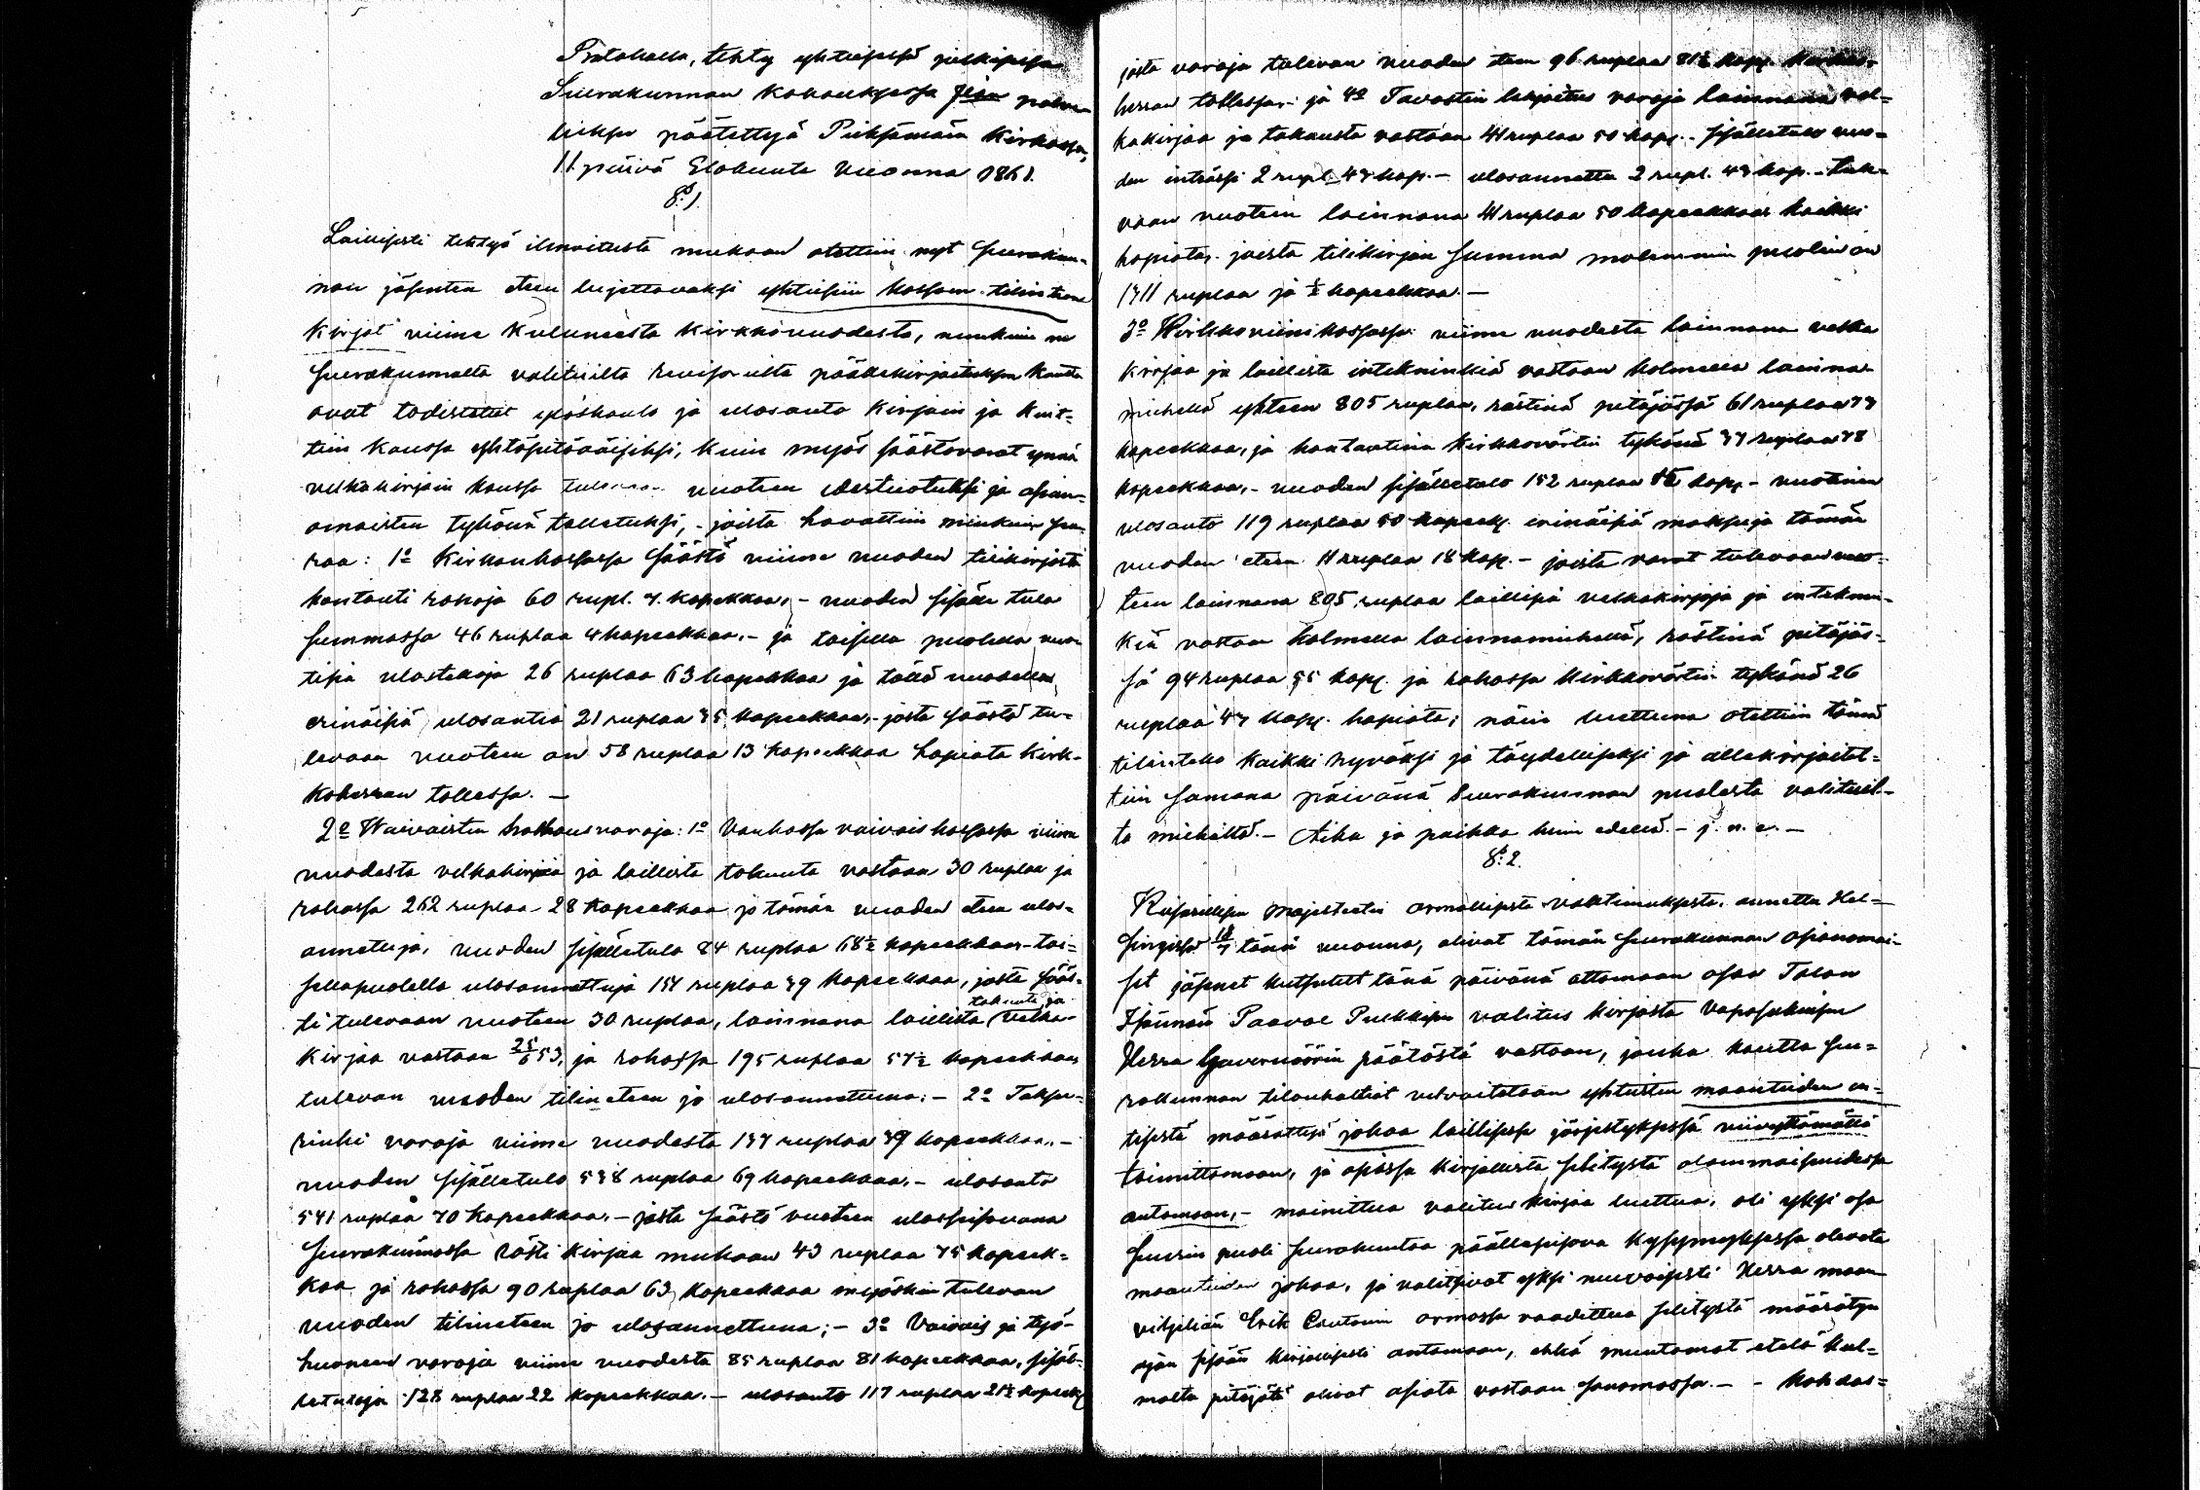 Protokolla, tehty yhteisessä julkisessa
Seurakunnan kokouksessa ja
päätettyä Pieksämään Kirkossa,
11 päivä Elokuuta Vuonna 1861.
§ 1.
Laillisesti tehtyä ilmoitusta mukaan otettiin nyt Seurakun-
nan jäsenten eteen lujettavaksi yhteisiin kassain tilinteon
Kirjat viime kuluneesta kirkkovuodesta, niinkuin ne
Seurakunnalta valituilta revisoreilta päällekirjoituksen kautta
ovat todistetut ylöskanto ja ulosanto kirjain ja kuit-
tein kanssa yhtäpitäväisiksi, kuin myös säästövarat ynnä
velkakirjain kanssa vuoteen edestuotuksi ja asian-
omaisten tykönä talletuksi, - joista havattiin niinkuin seu-
raa: 1o Kirkonkassassa säästö viime vuoden tilikirjasta
kontanti rahaja 60 rupl. 7. kopekkaa, - vuoden sisälle tulo
Summassa 46 ruplaa 4 kopeekkaa. - ja toisella puolella vuo-
tisia ulostekoja 26 ruplaa 63 kopeekkaa ja tällä vuodella
erinäisiä ulosantia 21 ruplaa 35 kopeekkaa, - josta säästö tu-
levaan vuoteen on 58 ruplaa 13 kopeekkaa hopiata Kirk-
koherran tallessa. -
2o Waivaisten holhousvaroja: 1o Vanhassa vaivaiskassassa viime
vuodesta velkakirjaa ja laillista takausta vastaan 30 ruplaa ja
rahassa 262 ruplaa 28 kopeekkaa jo tämän vuoden eteen ulos-
annettuja, vuoden sisälletulo 84 ruplaa 68½ kopeekkaa - toi-
sellapuolella ulosannettuja 151 ruplaa 39 kopeekkaa, josta sääs-
tö tulevaan vuoteen 30 ruplaa, lainnana laillista takausta ja velka-
kirjaa vastaan 25/6 53, ja rahassa 195 ruplaa 57½ kopeekkaa
tulevan vuoden tilineteen jo ulosannettuna; - 2o Taksee-
rinki varoja viime vuodesta 137 ruplaa 39 kopeekkaa, -
vuoden sisälletulo 538 ruplaa 69 kopeekkaa, - ulosanto
541 ruplaa 70 kopeekkaa, - josta säästö vuoteen ulosseisovana
Seurakunnassa rästi kirjaa mukaan 43 ruplaa 75 kopeek-
kaa ja rahassa 90 ruplaa 63 kopeekkaa myöskin tulevan
vuoden tilineteen jo ulosannettuna; - 3o Vaivais ja työ-
huoneen varoja viime vuodesta 85 ruplaa 81 kopeekkaa, sisäl-
letuloja 128 ruplaa 22 kopeekkaa. - ulosanto 117 ruplaa 21½ kopeek
josta varoja tulevan vuoden eteen 96 ruplaa 81½ kopek. Kirkko-
herran tallessa, ja 4o Tavastin lahjoitus varoja lainnana vel-
kakirjaa ja takausta vastaan 41 ruplaa 50 kopek. - sisälletulo vuo-
den inträssi 2 rupl. 49 kop. - ulosannettu 2 rupl. 49 kop. - tule-
vaan vuoteen lainnana 41 ruplaa 50 kopeekkaa kaikki
hopiata, joista tilikirjan summa molemmin puolin on
1311 ruplaa ja ½ kopeekkaa. -
3o Kirkkoviini kassassa viime vuodesta lainnana velka
kirjaa ja laillista intekninkiä vastaan kolmella lainna-
miehellä yhteen 805 ruplaa, rästinä pitäjässä 61 ruplaa
kopeekkaa, ja kontantina kirkkovärtin tykönä 37 ruplaa 78
kopeekkaa, - vuoden sisälletulo 152 ruplaa kopek - vuotinen
ulosanto 119 ruplaa 50 kopeek. erinäisiä maksuja tämän
vuoden eteen 11 ruplaa 18 kop. - joista varat tulevaan vuo-
teen lainnana 805 ruplaa laillisia velkakirjoja ja inteknin-
kiä vastaan kolmella lainnamiehellä, rästinä pitäjäs-
sä 94 ruplaa 55 kopek. ja rahassa kirkkovärtin tykönä 26
ruplaa 47 kopek. hopiata; näin luettuna otettiin tämä
tilinteko kaikki hyväksi ja täydelliseksi ja allekirjoitet-
tiin samana päivänä Seurakunnan puolesta valituil-
ta miehiltä. - Aika ja paikka kuin edellä. - j. n. e. -
§ 2.
Keisarillisen Majesteetin armollisesta vaatimuksesta, annettu Hel-
singissä 18/7 tänä vuonna, olivat tämän Seurakunnan asianomai-
set jäsenet kutsutut tänä päivänä ottamaan osaa Talon
Isännän Paavo Pulkkisen valitus kirjasta
Herra Gouvernöörin päätöstä vastaan, jonka kautta Seu-
rakunnan tilanhaltiat velvoitetaan yhteisten maanteiden en-
tisestä määrättyä jakoa laillisessa järjestyksessä viivyttämättä
toimittamaan, ja asiassa kirjallista selitystä
antamaan, - mainittua valitus kirjaa luettua, oli yksi osa
Suurin puoli seurakuntaa päällesisova kysymyksessä olevata
maanteiden jakoa, ja valitsivat yksi neuvoisesti Herra maan
viljeliän Erik armossa vaadittua selitystä määrätyn
ajan sisään kirjallisesti antamaan, ehkä muutamat etelä kul-
malta pitäjätä olivat asiata vastaan sanomassa. - - Kohdas-